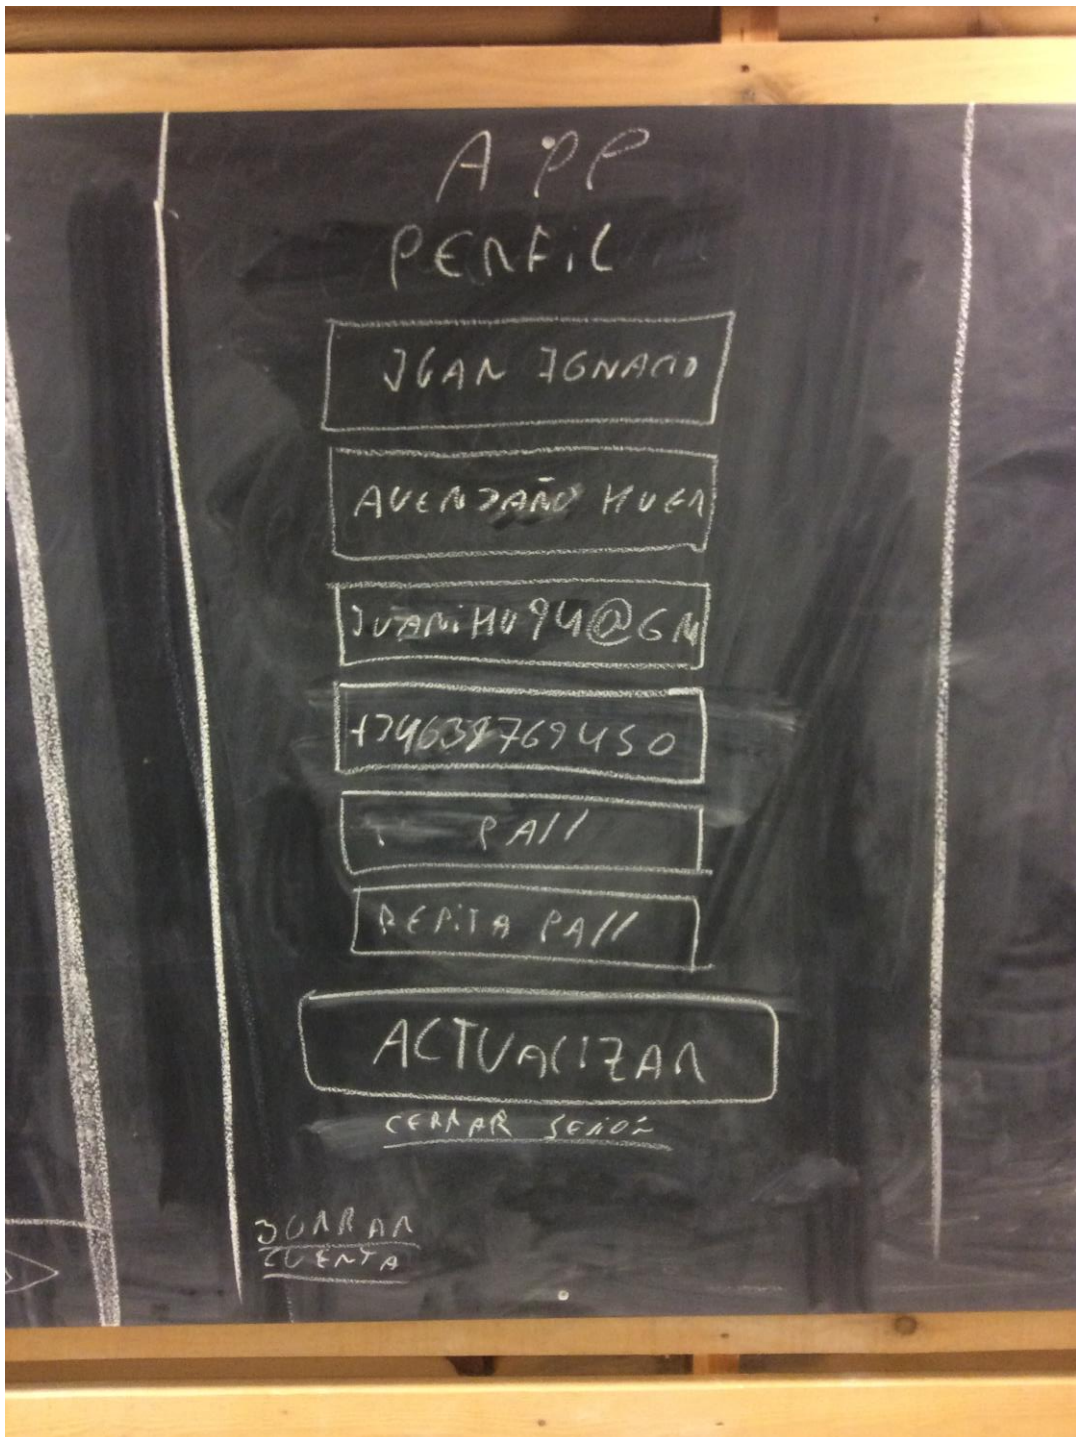 APP
PERFIL
JUAN IGNACIO
AVENDAÑO HUER
JUANIHU94@GM
+34639769450
PASS
REPITA PASS
ACTUALIZAR
CERRAR SESIÓN
BORRAR
CUENTA